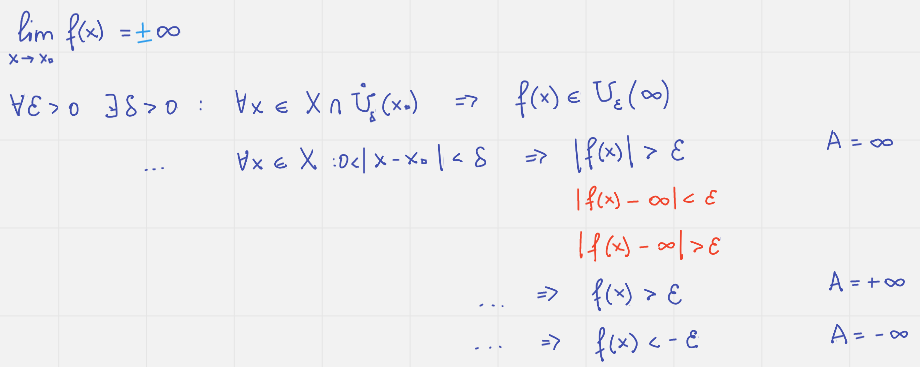 lim f(x) = ± ∞
x → x₀
∀ε > 0 ∃δ > 0 : ∀x ∈ X ∩ U̇_δ(x₀) => f(x) ∈ U_ε(∞)
... ∀x ∈ X : 0 < |x - x₀| < δ => |f(x)| > ε A = ∞
|f(x) - ∞| < ε
|f(x) - ∞| > ε
... => f(x) > ε A = +∞
... => f(x) < - ε A = -∞